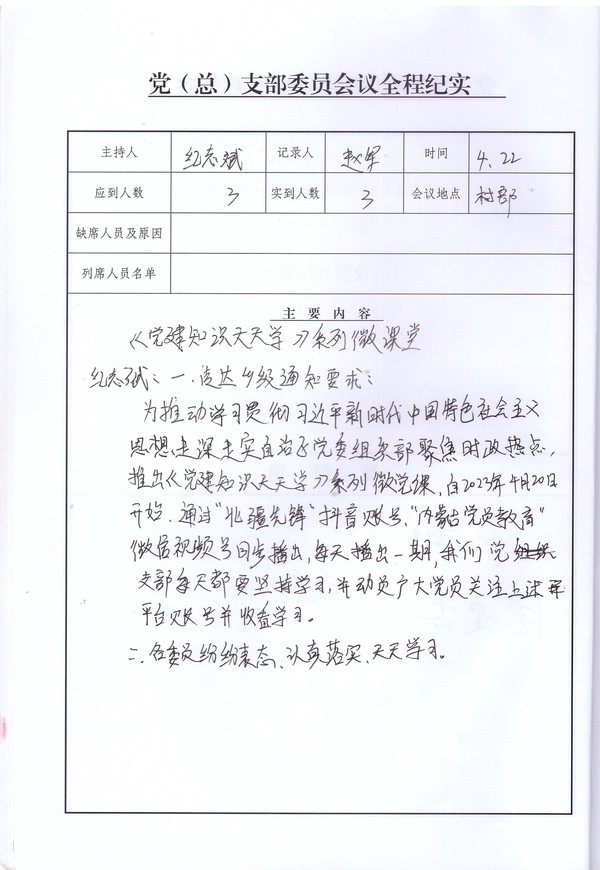 党（总）支部委员会议全程纪实
主持人 纪志斌 记录人 赵军 时间 4.22
应到人数 3 实到人数 3 会议地点 村部
缺席人员及原因
列席人员名单
主要内容
《党建知识天天学》系列微课堂
纪志斌：一、传达乡级通知要求：
为推动学习贯彻习近平新时代中国特色社会主义
思想走深走实自治区党委组织部聚焦时政热点，
推出《党建知识天天学》系列微党课，自2023年4月20日
开始，通过“北疆先锋”抖音账号、“内蒙古党员教育”
微信视频号同步播出，每天播出一期，我们党
支部每天都要坚持学习，并动员广大党员关注上述
平台账号并收看学习。
二、各委员纷纷表态、认真落实、天天学习。